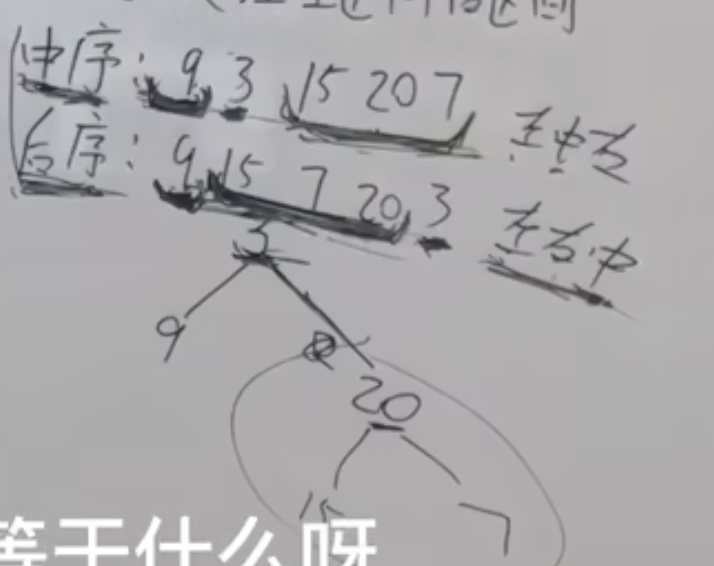 中序：9 3 15 20 7 左中右
后序：9 15 7 20 3 左右中
3
9
20
15 7
等于什么呀